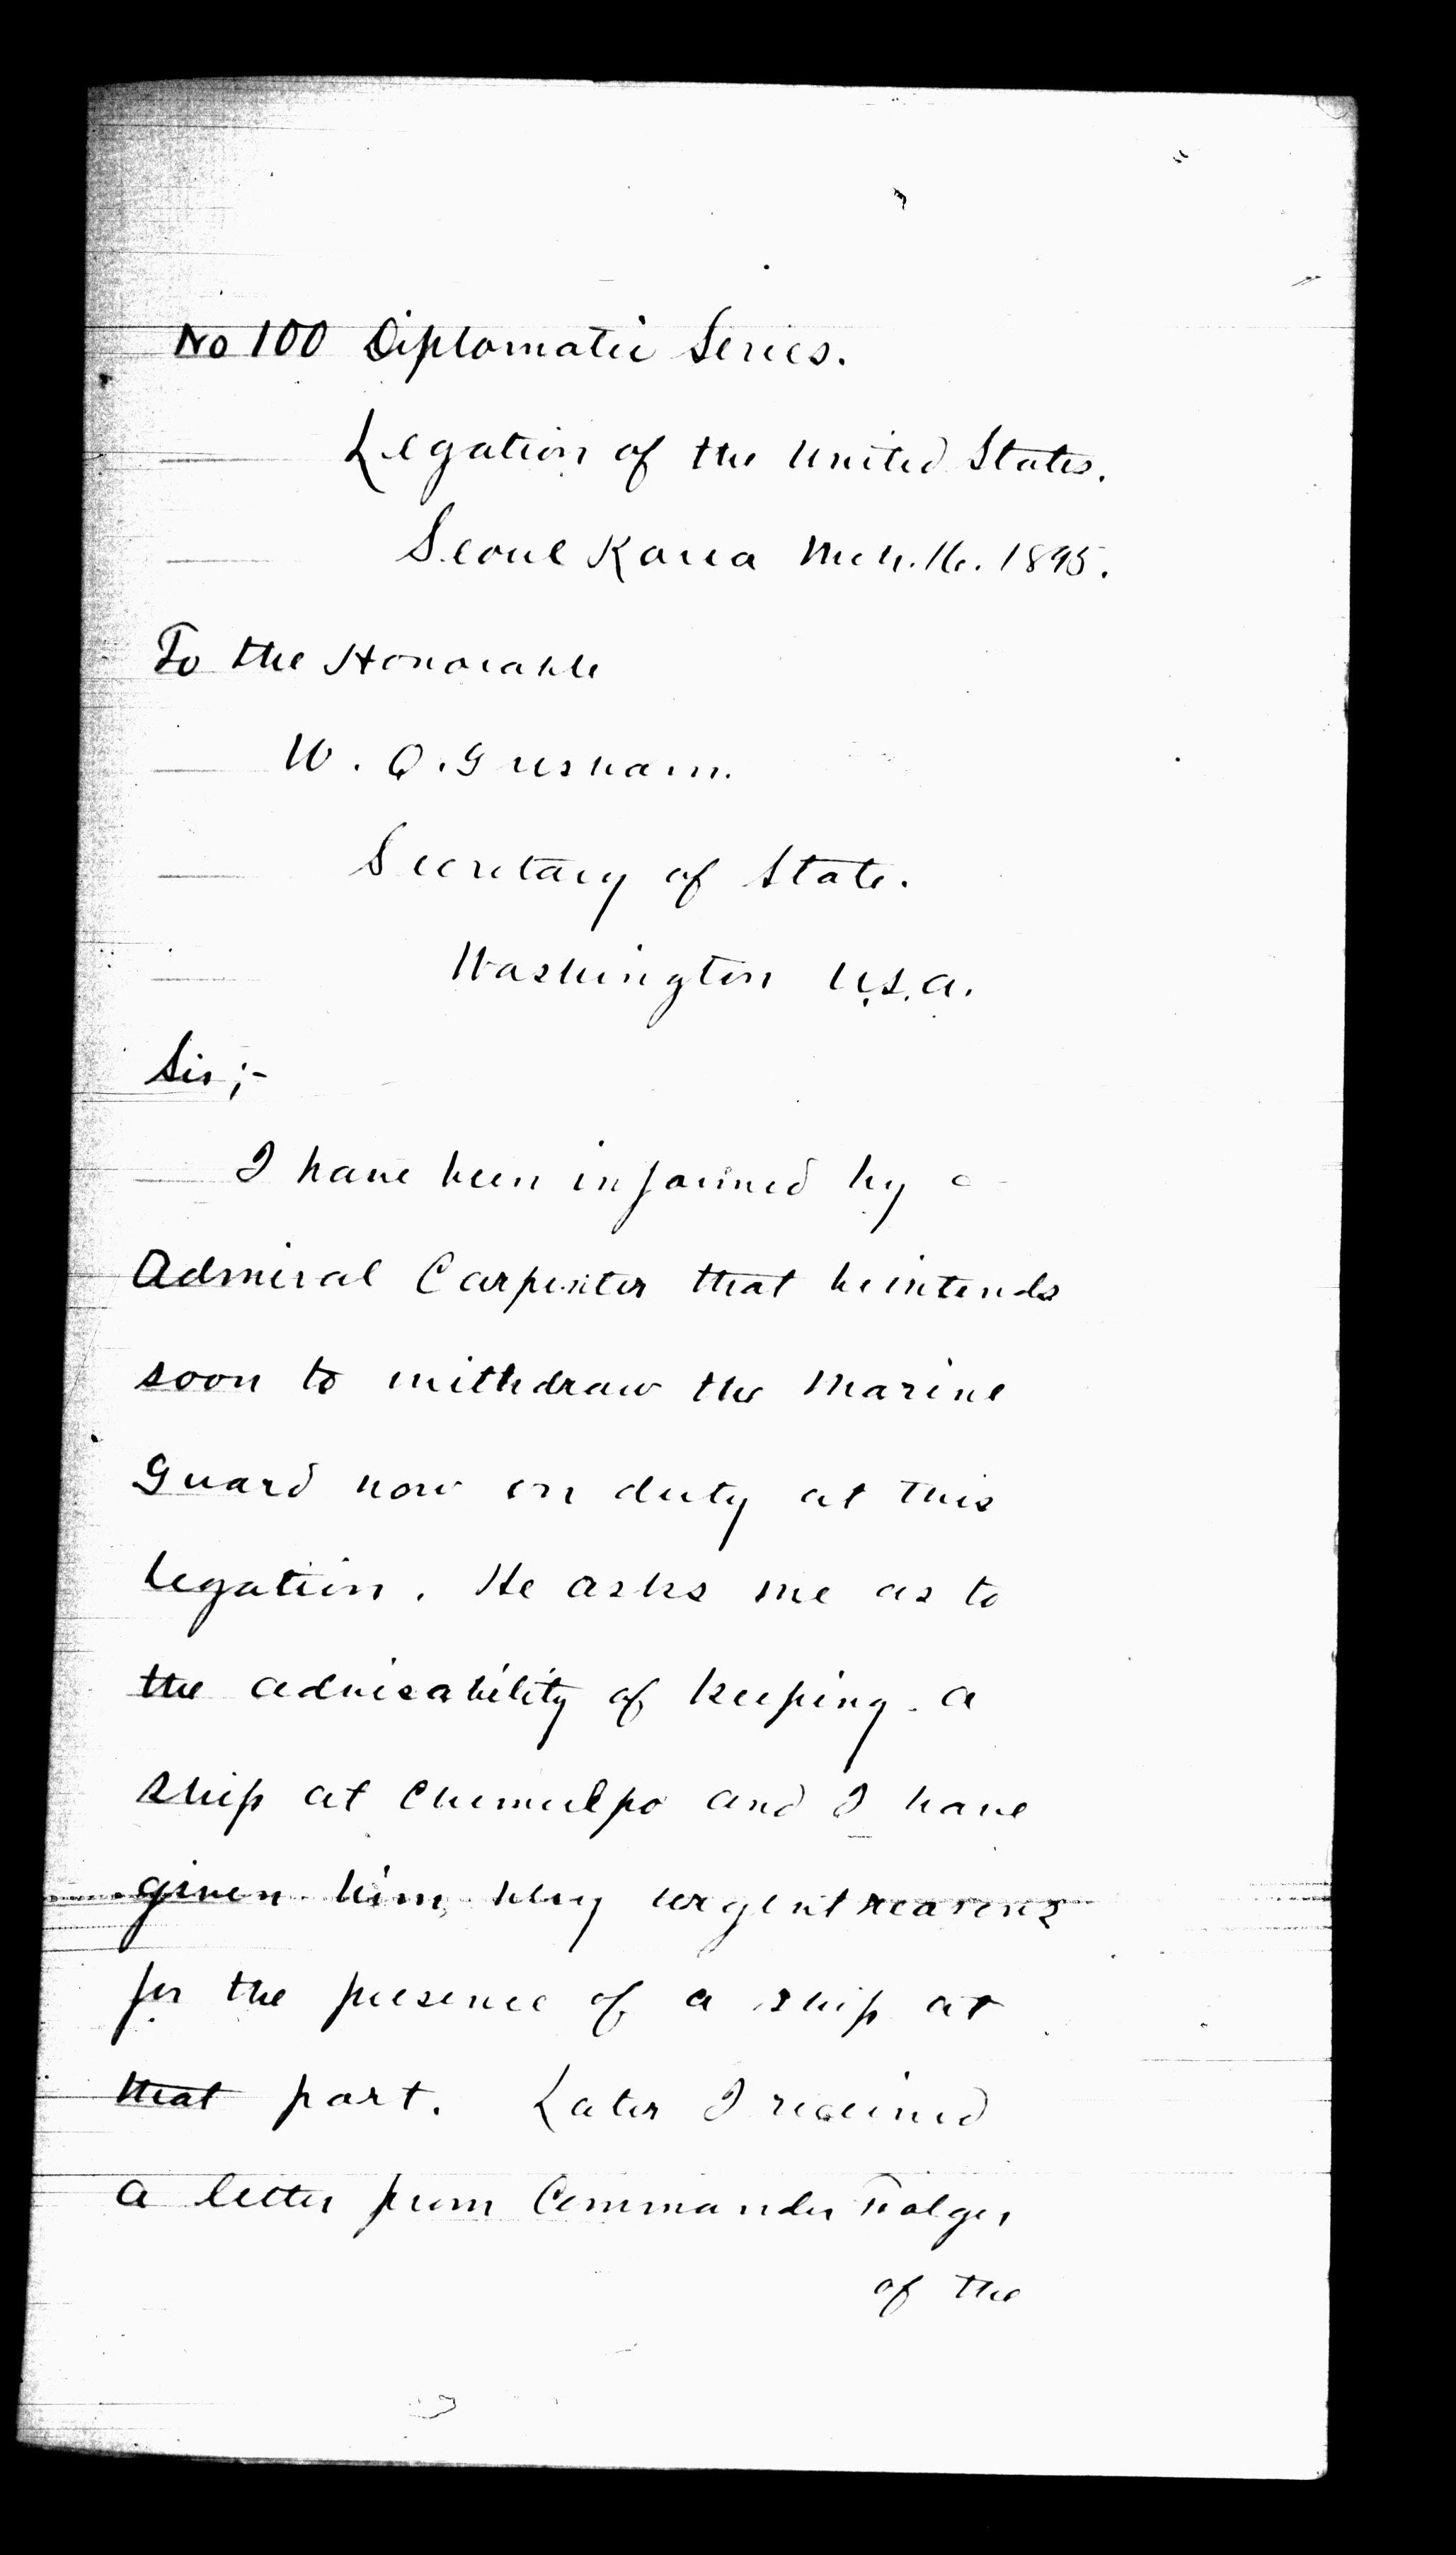 No 100 Diplomatic Series.
Legation of the United States.
Seoul Korea Mch. 16. 1895.
To the Honorable
W. Q. Gresham.
Secretary of State.
Washington U.S.A.
Sir;-
I have been informed by
Admiral Carpenter that he intends
soon to withdraw the Marine
Guard now on duty at this
Legation. He asks me as to
the advisability of keeping a
ship at Chemulpo and I have
given him very urgent reasons
for the presence of a ship at
that port. Later I received
a letter from Commander Folger
of the